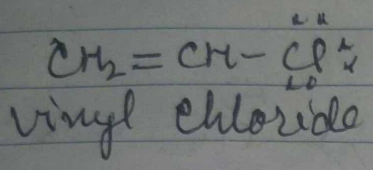 CH₂ = CH - Cl
vinyl chloride